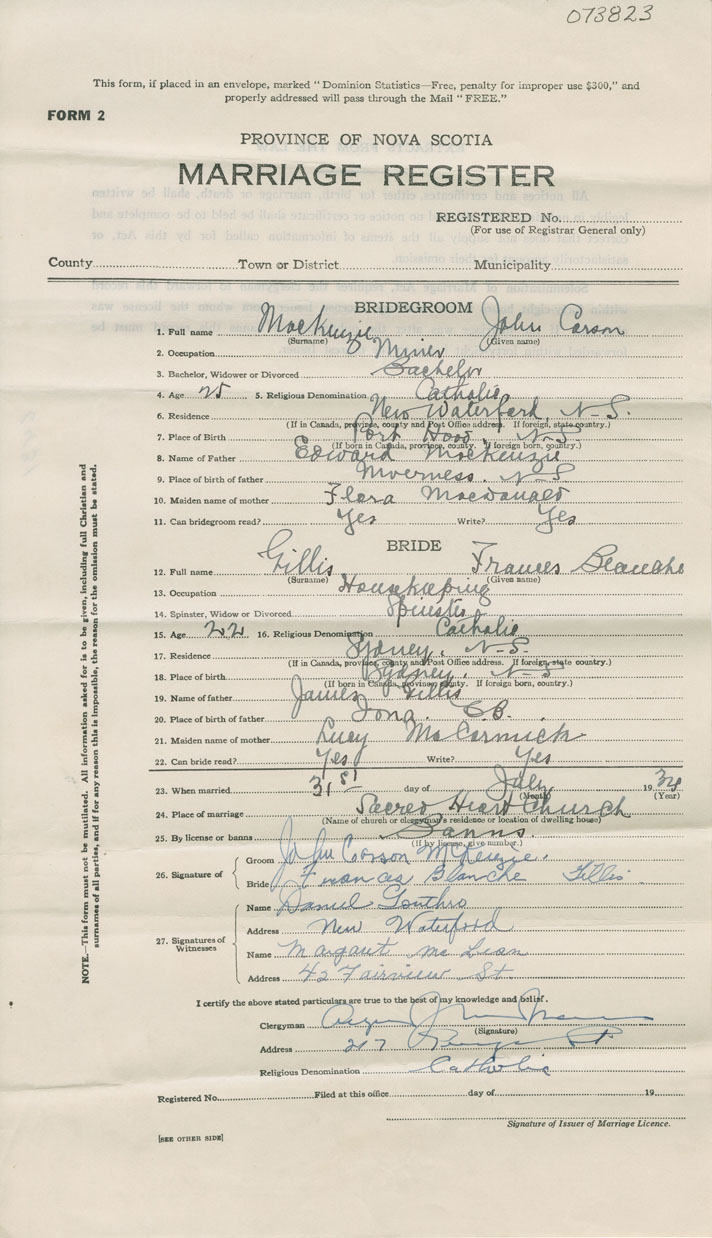 073823
This form, if placed in an envelope, marked "Dominion Statistics—Free, penalty for improper use $300," and
properly addressed will pass through the Mail "FREE."
FORM 2
PROVINCE OF NOVA SCOTIA
MARRIAGE REGISTER
REGISTERED No.
(For use of Registrar General only)
County Town or District Municipality
BRIDEGROOM
1. Full name MacKenzie John Carson
(Surname) (Given name)
2. Occupation Miner
3. Bachelor, Widower or Divorced Bachelor
4. Age 25 5. Religious Denomination Catholic
6. Residence New Waterford, N-S.
(If in Canada, province, county and Post Office address. If foreign, state country.)
7. Place of Birth Port Hood, N-S.
(If born in Canada, province, county. If foreign born, country.)
8. Name of Father Edward MacKenzie
9. Place of birth of father Inverness, N-S
10. Maiden name of mother Flora MacDonald
11. Can bridegroom read? Yes Write? Yes
BRIDE
12. Full name Gillis Frances Blanche
(Surname) (Given name)
13. Occupation Housekeeping
14. Spinster, Widow or Divorced Spinster
15. Age 22 16. Religious Denomination Catholic
17. Residence Sydney, N-S.
(If in Canada, province, county and Post Office address. If foreign, state country.)
18. Place of birth Sydney, N-S
(If born in Canada, province, county. If foreign born, country.)
19. Name of father James Gillis
20. Place of birth of father Iona, C.B.
21. Maiden name of mother Lucy McCormick
22. Can bride read? Yes Write? Yes
23. When married 31st day of July 19
(Month) (Year)
24. Place of marriage Sacred Heart Church
(Name of church or clergyman's residence or location of dwelling house)
25. By license or banns Banns
(If by license, give number.)
26. Signature of
Groom John Carson McKenzie.
Bride Frances Blanche Gillis
27. Signatures of Witnesses
Name Daniel Gouthro
Address New Waterford
Name Margaret McLean
Address 42 Fairview St.
I certify the above stated particulars are true to the best of my knowledge and belief.
Clergyman
(Signature)
Address 217 St
Religious Denomination Catholic
Registered No. Filed at this office day of 19
Signature of Issuer of Marriage Licence.
[SEE OTHER SIDE]
NOTE.—This form must not be mutilated. All information asked for is to be given, including full Christian and
surnames of all parties, and if for any reason this is impossible, the reason for the omission must be stated.